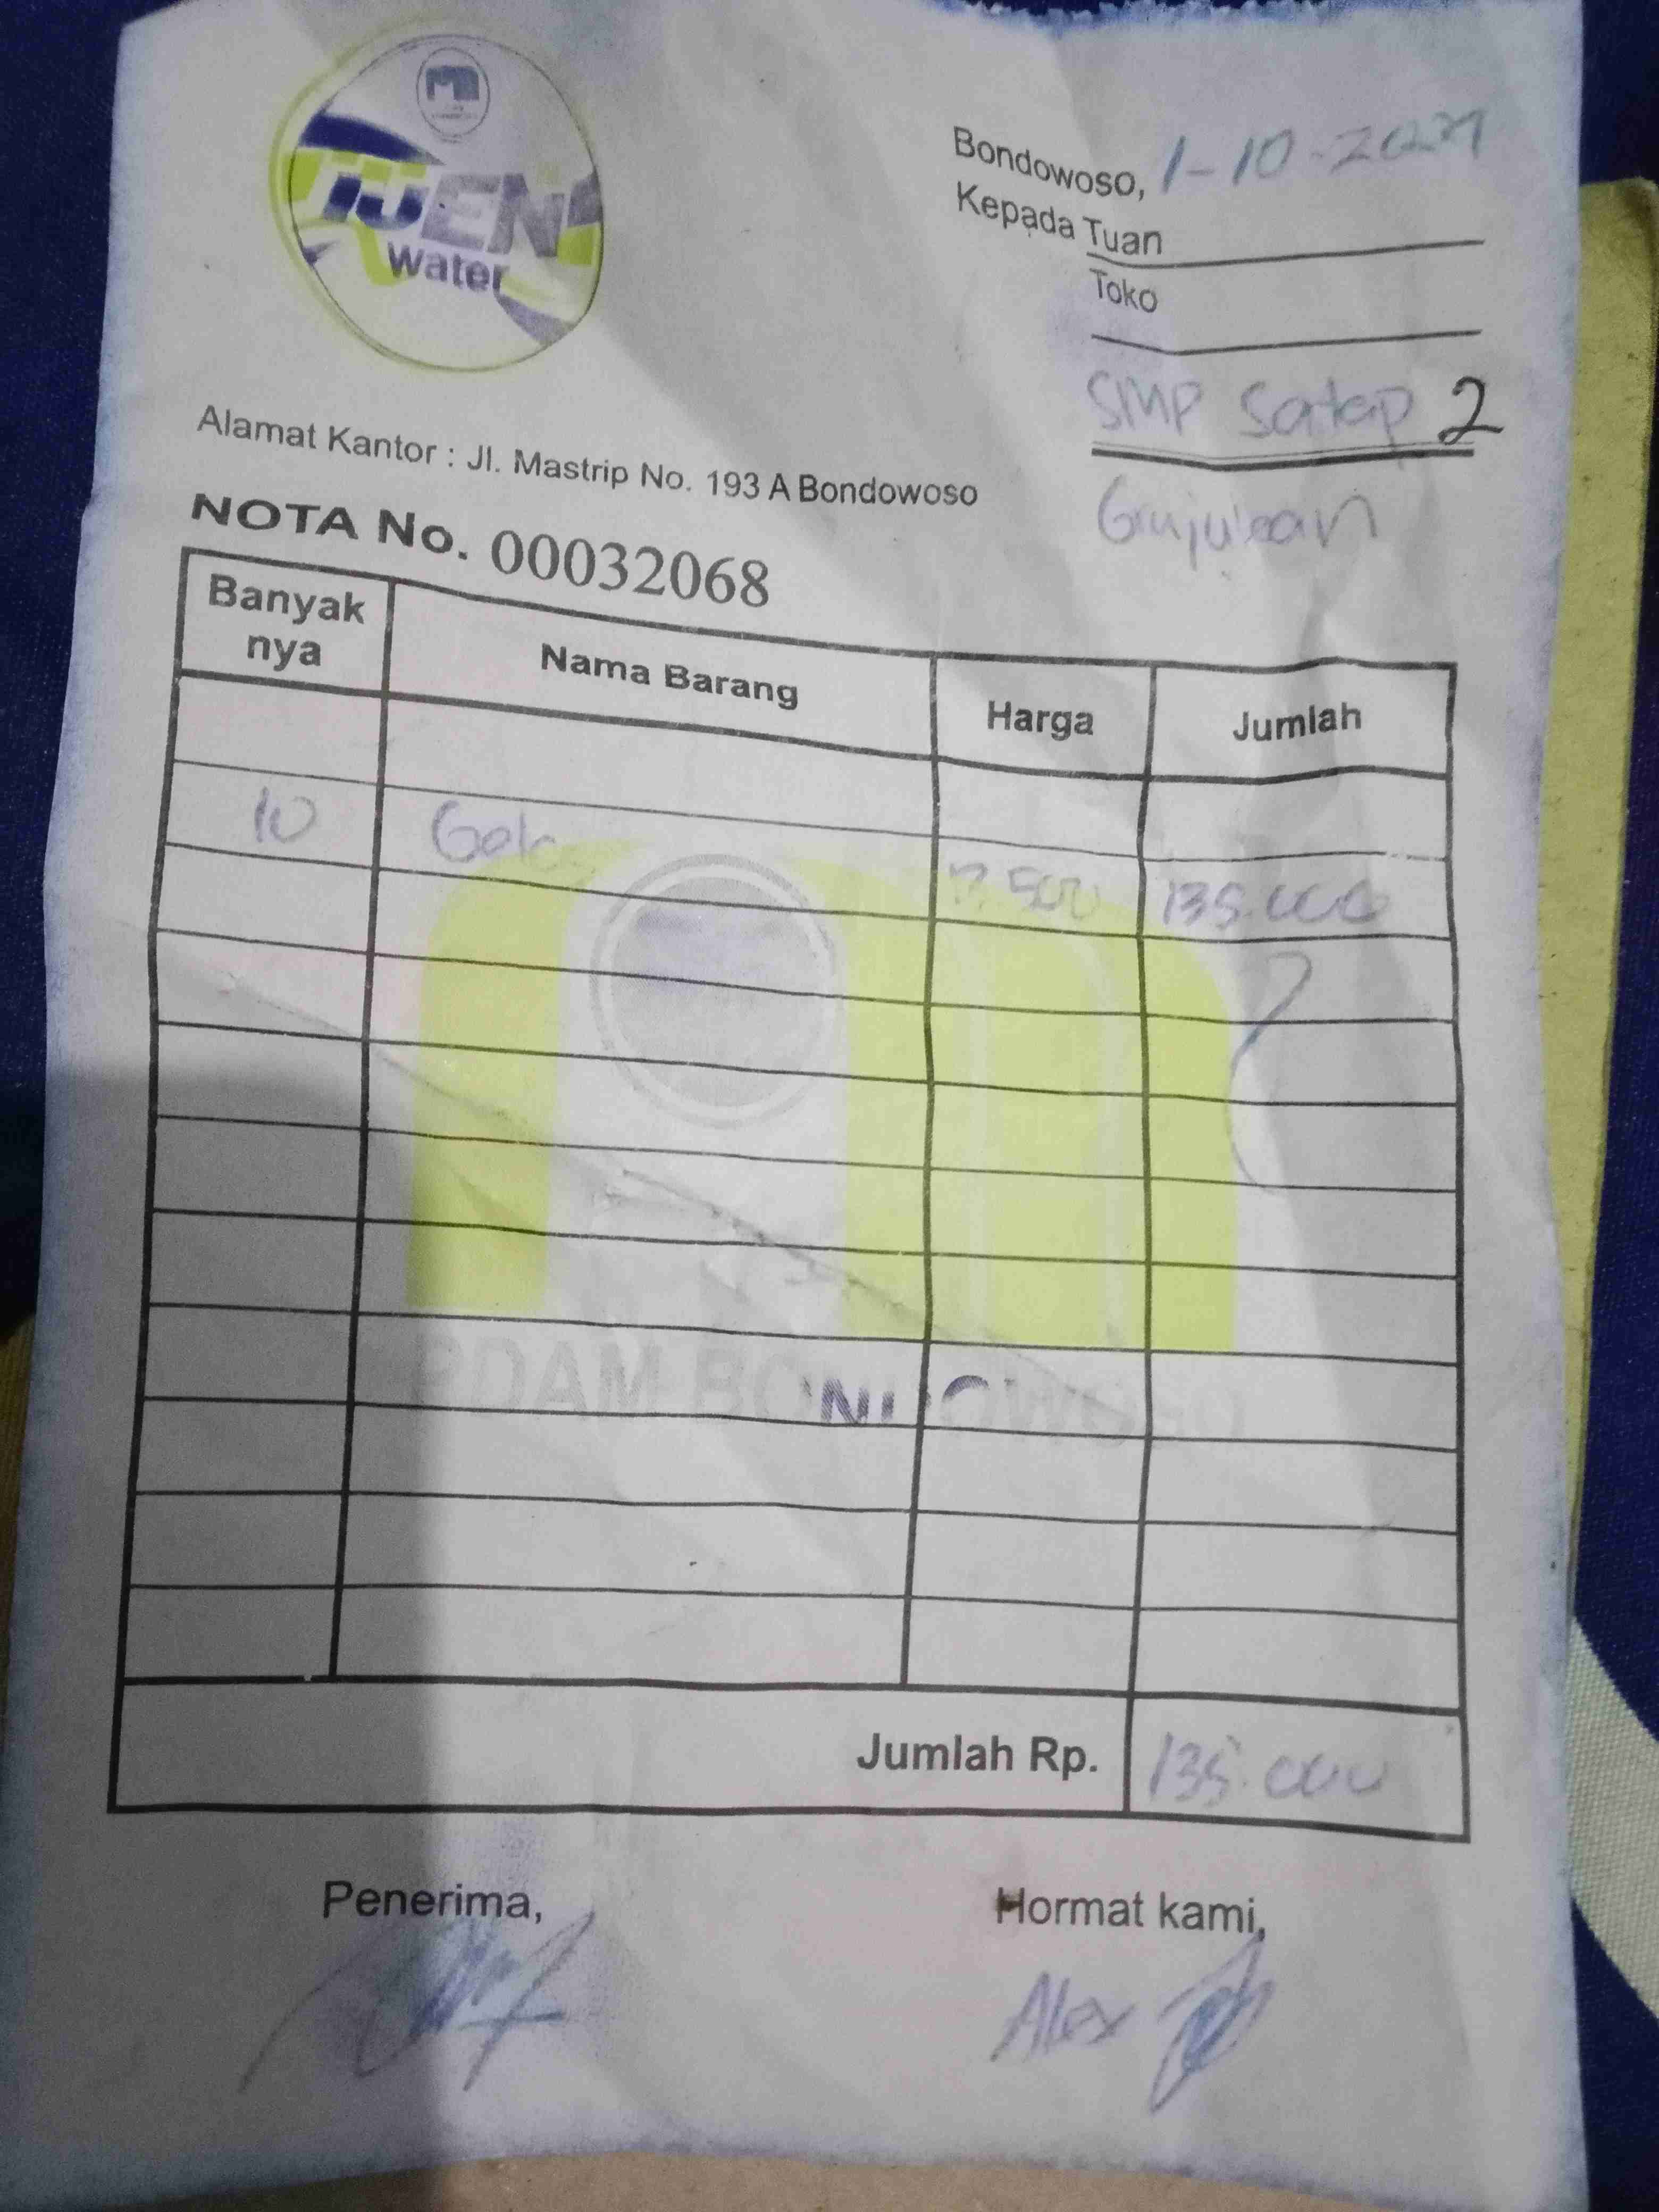 TIJEN
Water
Bondowoso, 1-10-2024
Kepada Tuan
Toko
SMP Satap 2
Grujukan
Alamat Kantor : Jl. Mastrip No. 193 A Bondowoso
NOTA No. 00032068
Banyak nya Nama Barang Harga Jumlah
10 135.000
PDAM BONDOWOSO
Jumlah Rp. 135.000
Penerima, Hormat kami,
Alex